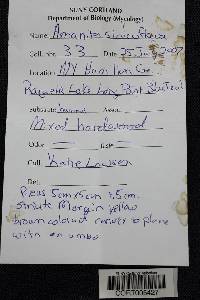 SUNY CORTLAND
Department of Biology (Mycology)
Name Amanita
Coll. No. 33 Date 25 July 2007
Location NY Hamilton Co.
Raquette Lake Long Point
Substrate Ground Assoc.
Mixed hardwood
Odor Taste
Coll. Katie Lawsen
Det.
Pileus 5cm x 5cm x .5cm
Striate Margin yellow
brown colored convex to plane
with an umbo
CORT006427